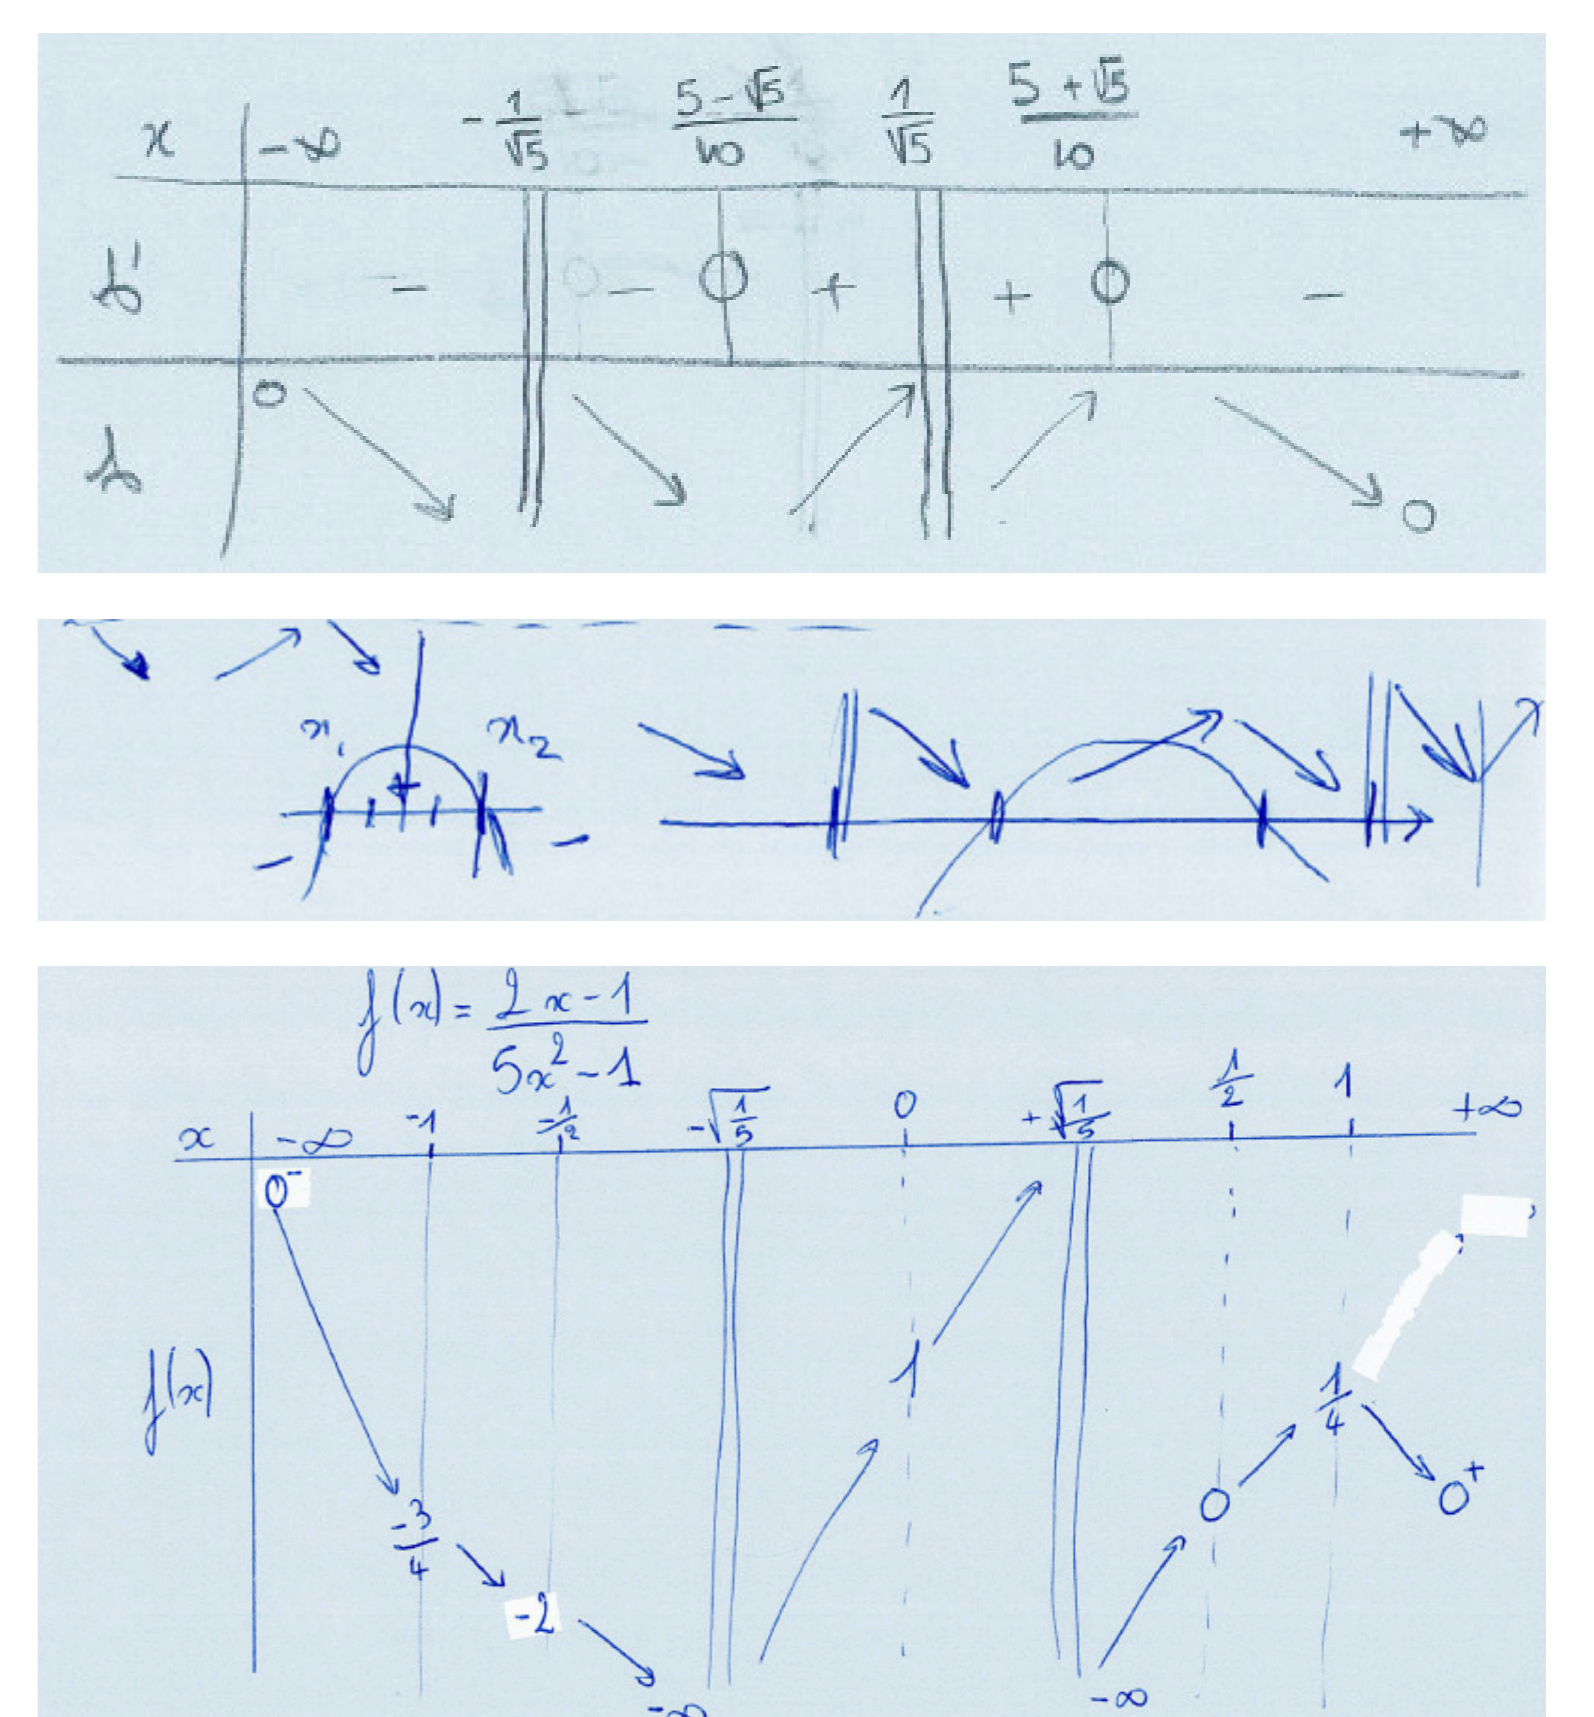 x -∞ -1/√5 (5-√5)/10 1/√5 (5+√5)/10 +∞
f' - - 0 + + 0 -
f 0 ↘ ↘ ↗ ↗ ↘ 0
x₁ x₂
- -
f(x) = (2x-1)/(5x²-1)
x -∞ -1 -1/2 -√(1/5) 0 +√(1/5) 1/2 1 +∞
0⁻
1
f(x) 1/4
0 0⁺
-3/4
-2
-∞ -∞